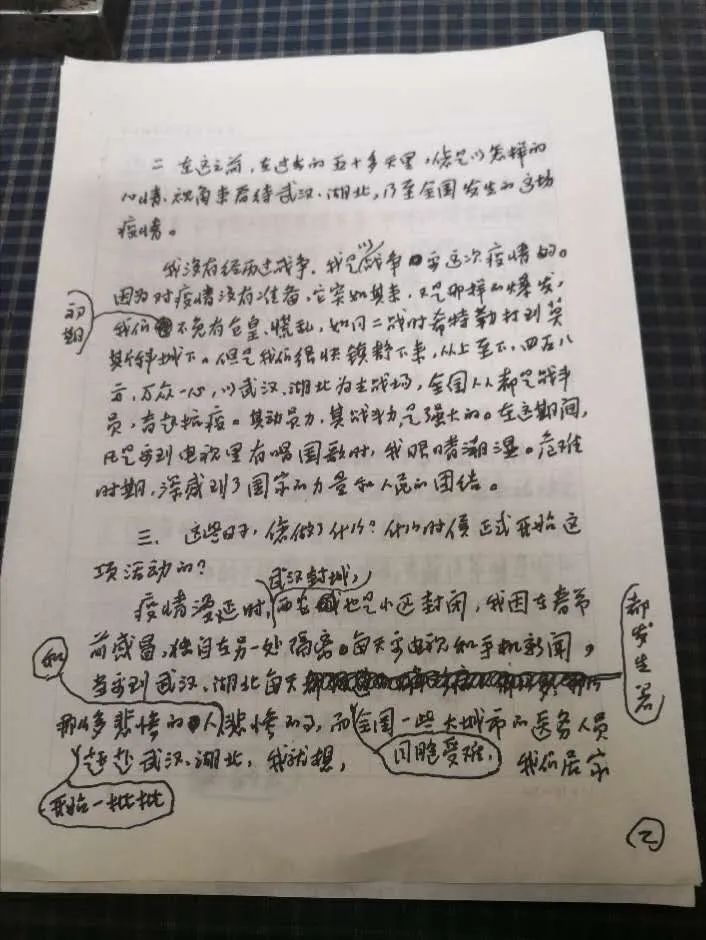 二 在这之前,在过去的五十多天里,您是以怎样的
心情、视角来看待武汉、湖北,乃至全国发生的这场
疫情。
我没有经历过战争,我是以战争来看这次疫情的。
因为对疫情没有准备,它突如其来,又是那样的爆发,
初期
我们不免有仓皇、慌乱,如同二战时希特勒打到莫
斯科城下。但是我们很快镇静下来,从上至下,四面八
方,万众一心,以武汉、湖北为主战场,全国人人都是战斗
员,奋起抗疫。其动员力,其战斗力是强大的。在这期间,
凡是看到电视里有唱国歌时,我眼睛潮湿。危难
时期,深感到了国家的力量和人民的团结。
三、这些日子,您做了什么?什么时候正式开始这
项活动的?
武汉封城,
疫情漫延时,西安也是小区封闭,我因在春节
前感冒,独自在另一处隔离。每天看电视和手机新闻,
都发生着
当看到武汉、湖北每天
和
那么多悲惨的人悲惨的事,而全国一些大城市的医务人员
赶赴武汉、湖北,我就想,
同胞受难,
我们居家
开始一批批
②